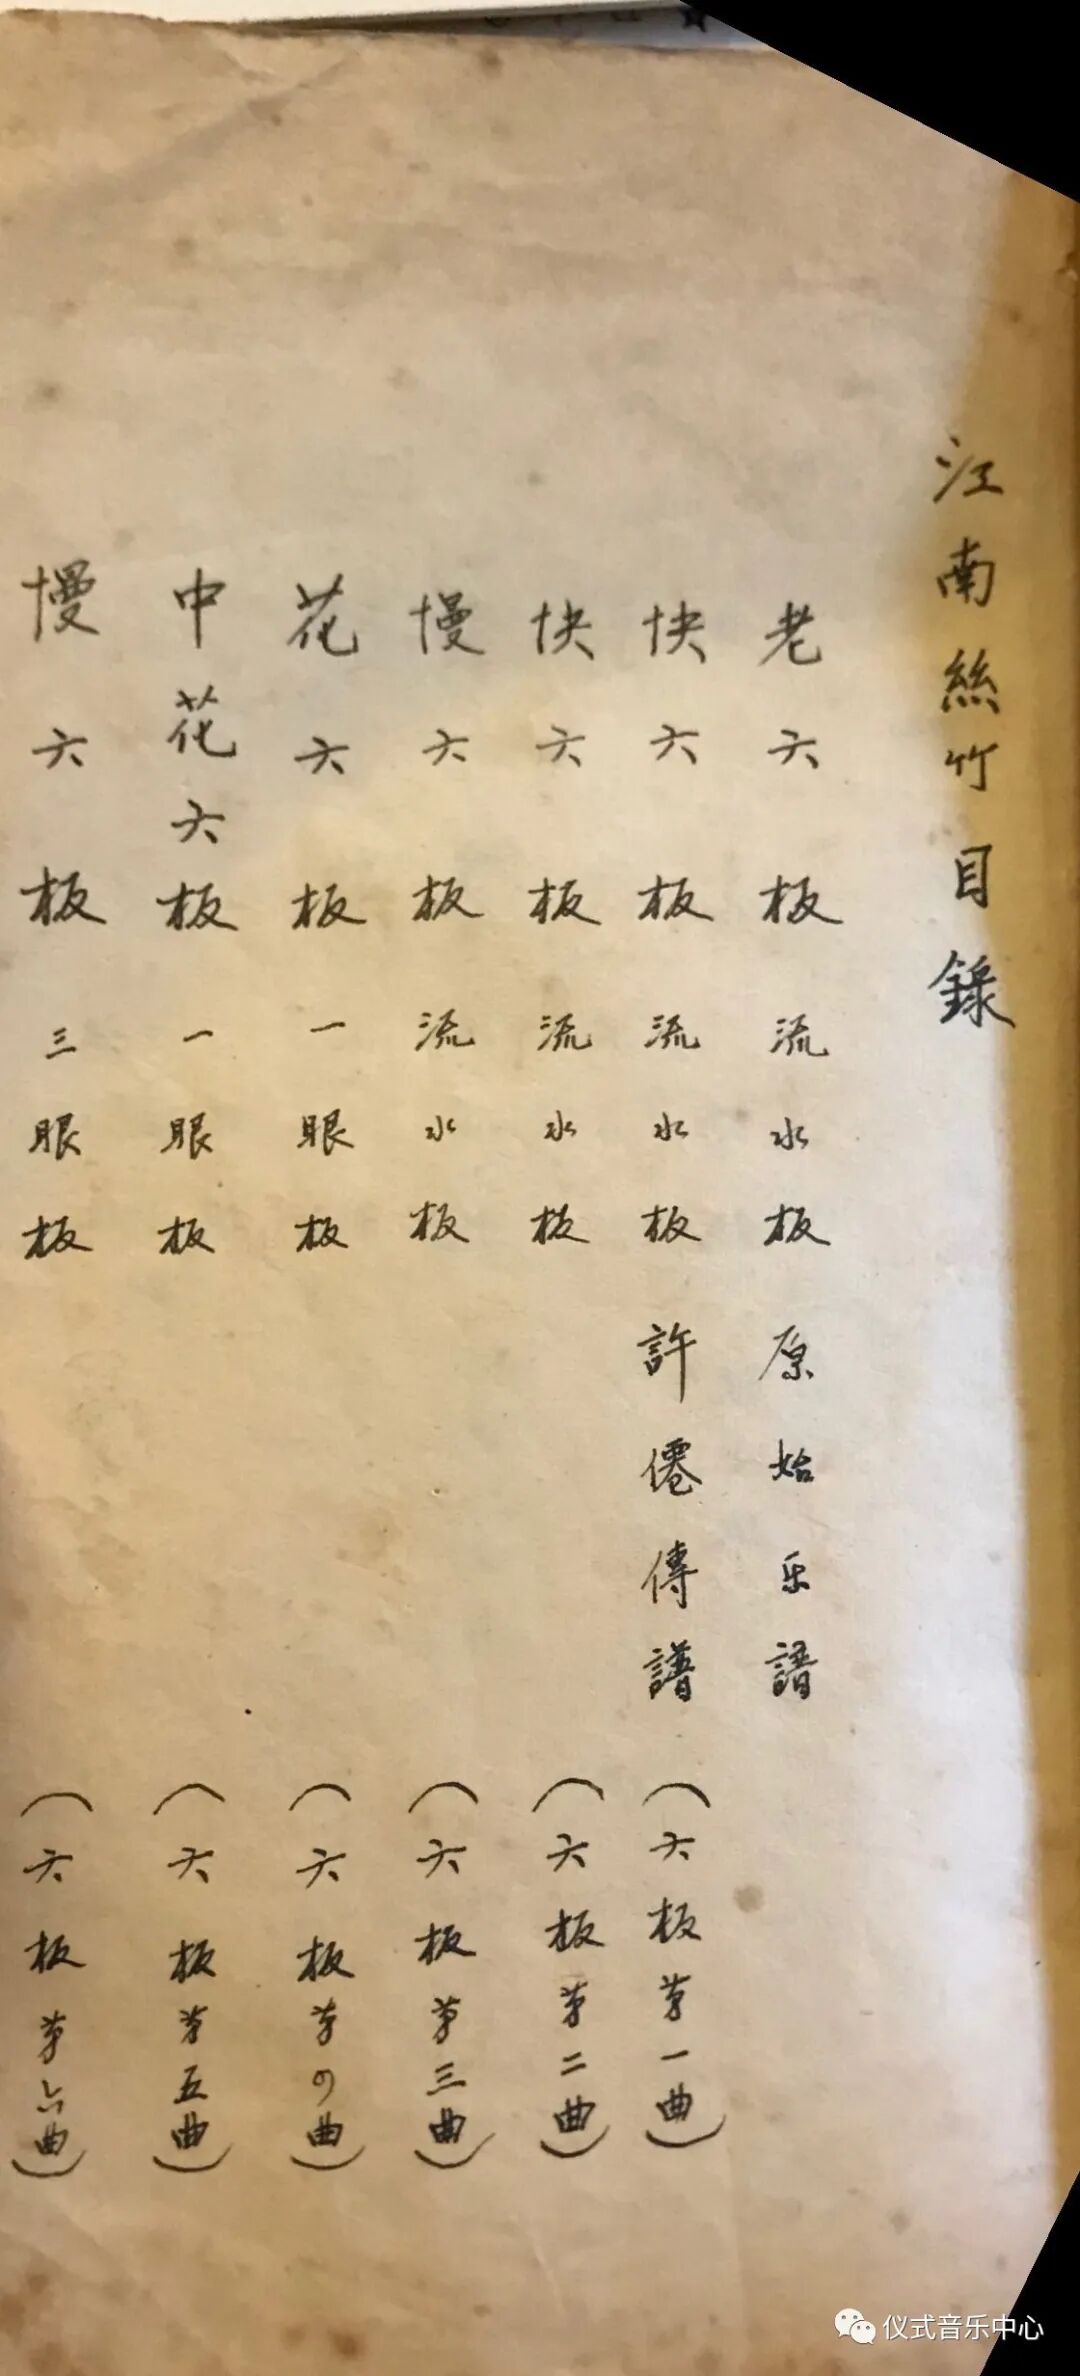 江南絲竹目錄
老六板 流水板 原始乐譜
快六板 流水板 許僊傳譜 (六板第一曲)
快六板 流水板 (六板第二曲)
慢六板 流水板 (六板第三曲)
花六板 一眼板 (六板第四曲)
中花六板 一眼板 (六板第五曲)
慢六板 三眼板 (六板第六曲)
仪式音乐中心